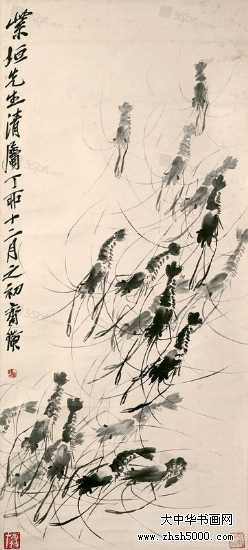 紫垣先生清属丁卯十二月之初齐璜
大中华书画网
www.zhsh5000.com